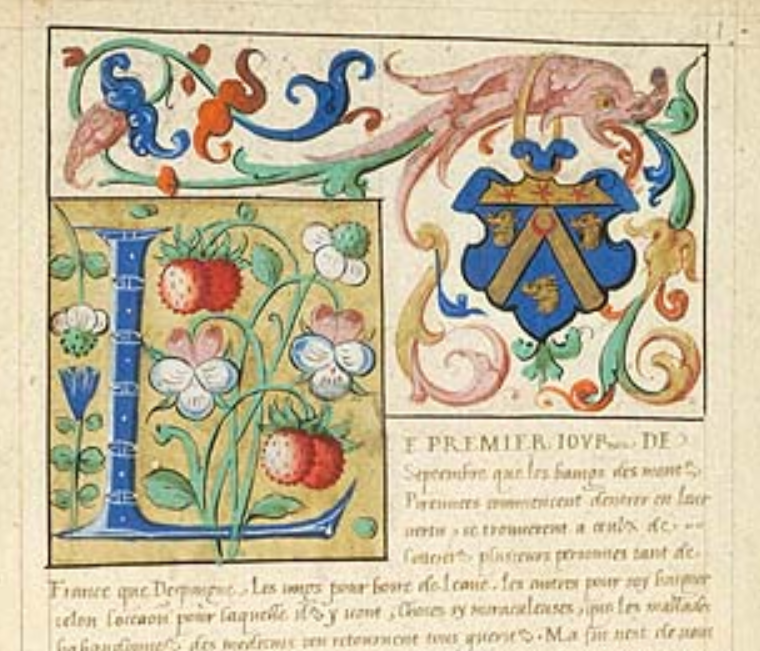 L
E PREMIER IOVR DE
Septembre que les baings des mons
Pirennees commencent dentrer en leur
vertu, se trouverent a ceulx de
plusieurs personnes tant de
France que Despaigne, Les ungs pour boire de leaue, les autres pour soy baigner
selon loccasion pour laquelle ilz y vont, Choses sy miraculeuses, que les mallades
habandonnez des medecins sen retournent tous gueriz. Ma fin nest de vous